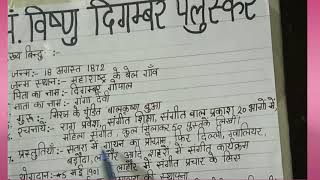 पं. विष्णु दिगम्बर पलुस्कर
ख्य बिन्दु :-
जन्म:- 18 अगस्त 1872
जन्म स्थान:- महाराष्ट्र के बेल गाँव
पिता का नाम :- दिगम्बर गोपाल
माता का नाम :- गंगा देवी
गुरु :- मिरज के पंडित बालकृष्ण बुआ
रचनायें:- राग प्रवेश, संगीत शिक्षा, संगीत बाल प्रकाश 20 भागों में,
महिला संगीत, कुल मिलाकर 50 पुस्तकें लिखीं
प्रस्तुतियाँ:- सतारा में गायन का प्रोग्राम, फिर दिल्ली, ग्वालियर,
बड़ौदा, लाहौर आदि शहरों में संगीत कार्यक्रम
योगदान :- 5 मई 1901 लाहौर में संगीत प्रचार के लिए
की स्थापना